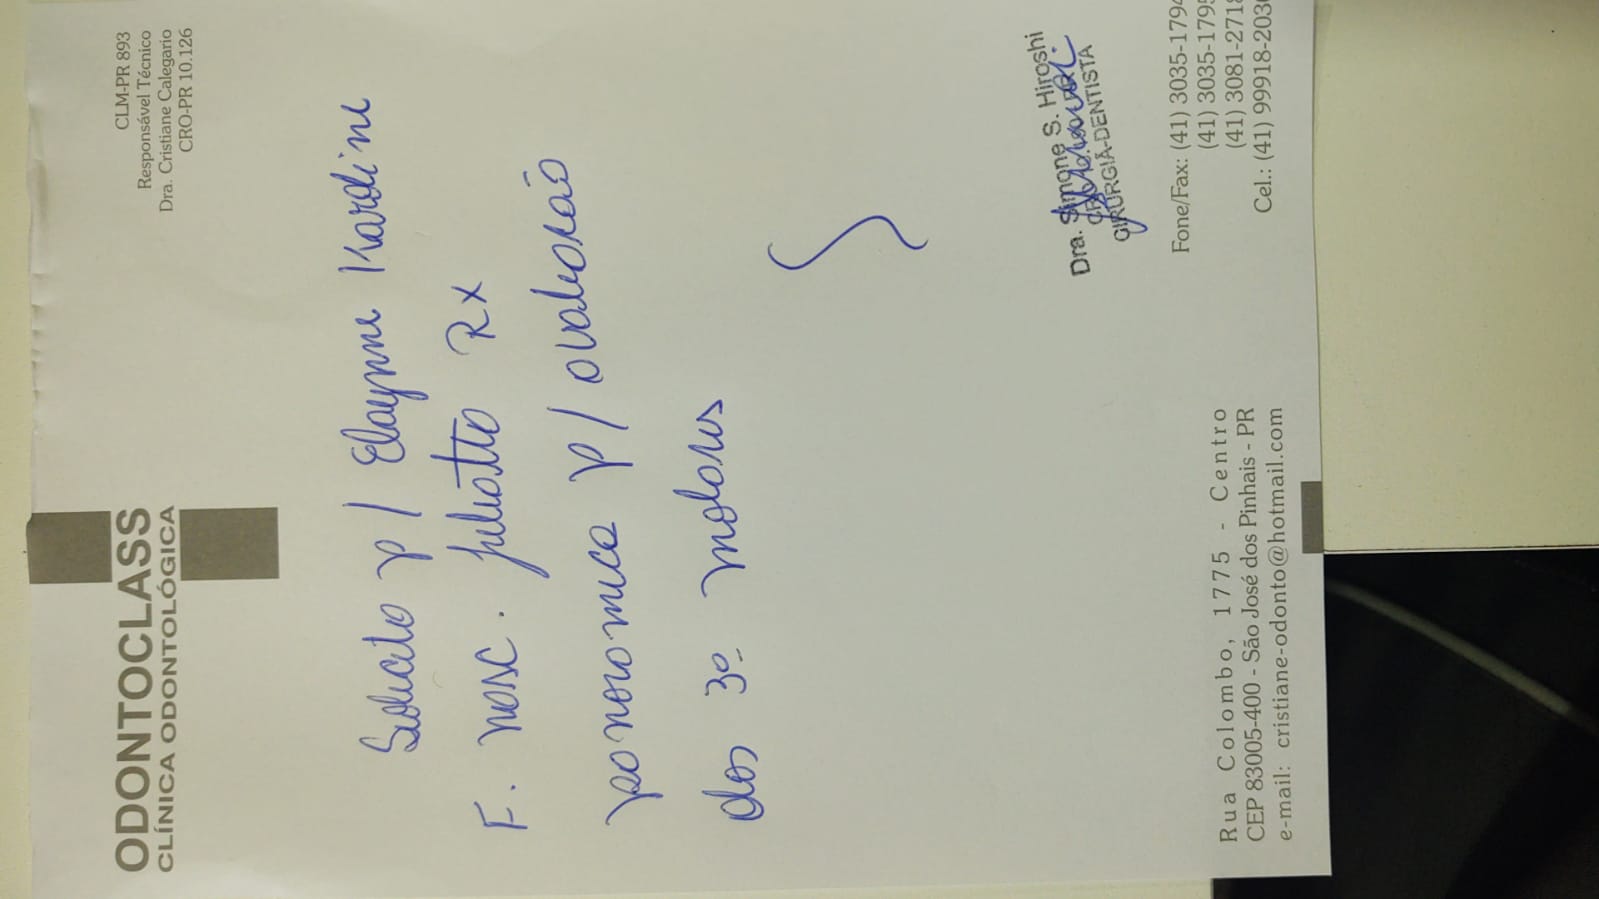 ODONTOCLASS
CLÍNICA ODONTOLÓGICA
CLM-PR 893
Responsável Técnico
Dra. Cristiane Calegario
CRO-PR 10.126
Solicito p/ Elayne Karoline
F. Nasc. Peliatto Rx
panoramica p/ avaliação
dos 3º molares
Dra. Simone S. Hiroshi
CIRURGIÃ-DENTISTA
Rua Colombo, 1775 - Centro
CEP 83005-400 - São José dos Pinhais - PR
e-mail: cristiane-odonto@hotmail.com
Fone/Fax: (41) 3035-1794
(41) 3035-1795
(41) 3081-2718
Cel.: (41) 99918-2030